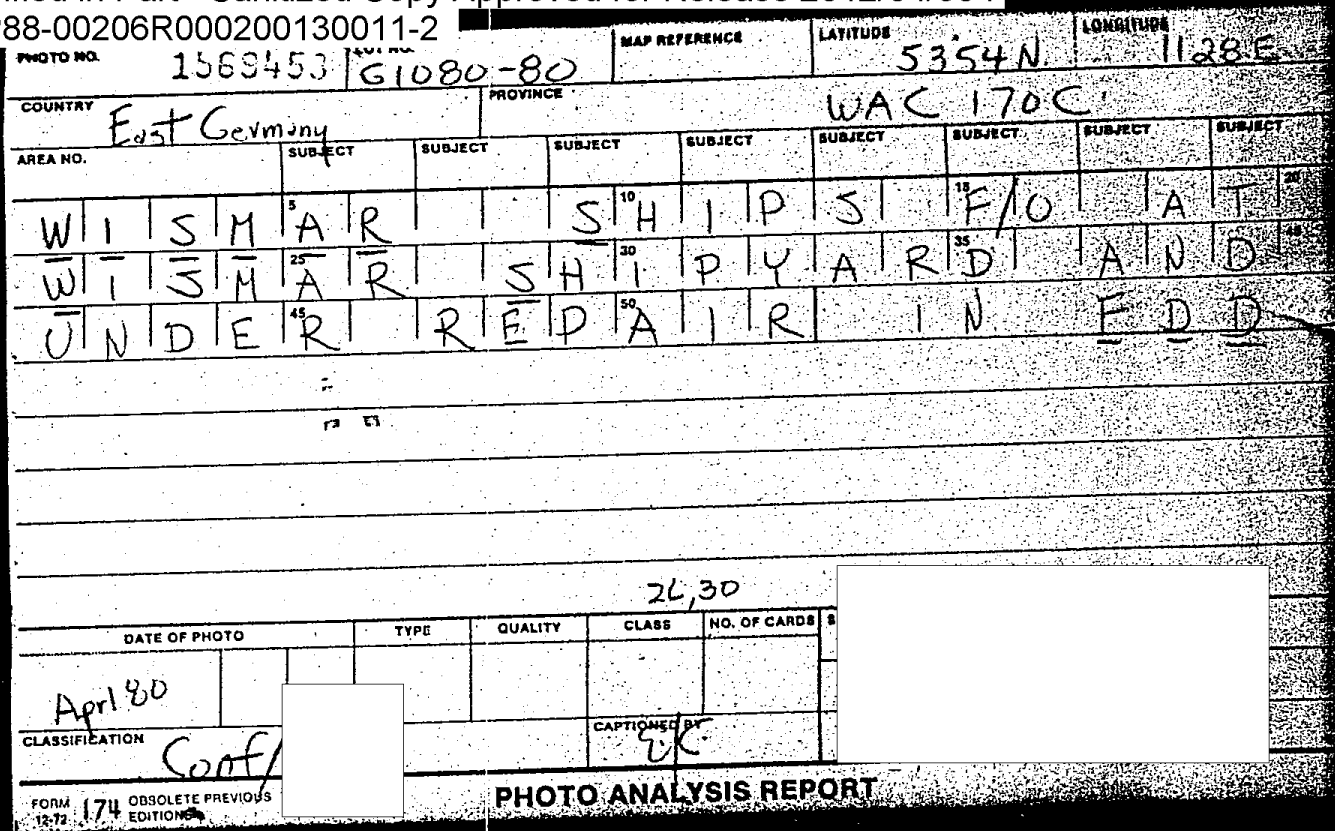 ified in Part - Sanitized Copy Approved for Release
88-00206R000200130011-2
PHOTO NO. 1569453 LOT NO. G1080-80 MAP REFERENCE LATITUDE 5354N LONGITUDE 1128E
COUNTRY East Germany PROVINCE WAC 170C
AREA NO. SUBJECT SUBJECT SUBJECT SUBJECT SUBJECT SUBJECT SUBJECT SUBJECT
WISMAR SHIPS F/O AT
WISMAR SHIPYARD AND
UNDER REPAIR IN FDD
26,30
DATE OF PHOTO TYPE QUALITY CLASS NO. OF CARDS
Aprl 80
CLASSIFICATION Conf/ CAPTIONED BY
FORM 12-72 174 OBSOLETE PREVIOUS EDITIONS
PHOTO ANALYSIS REPORT